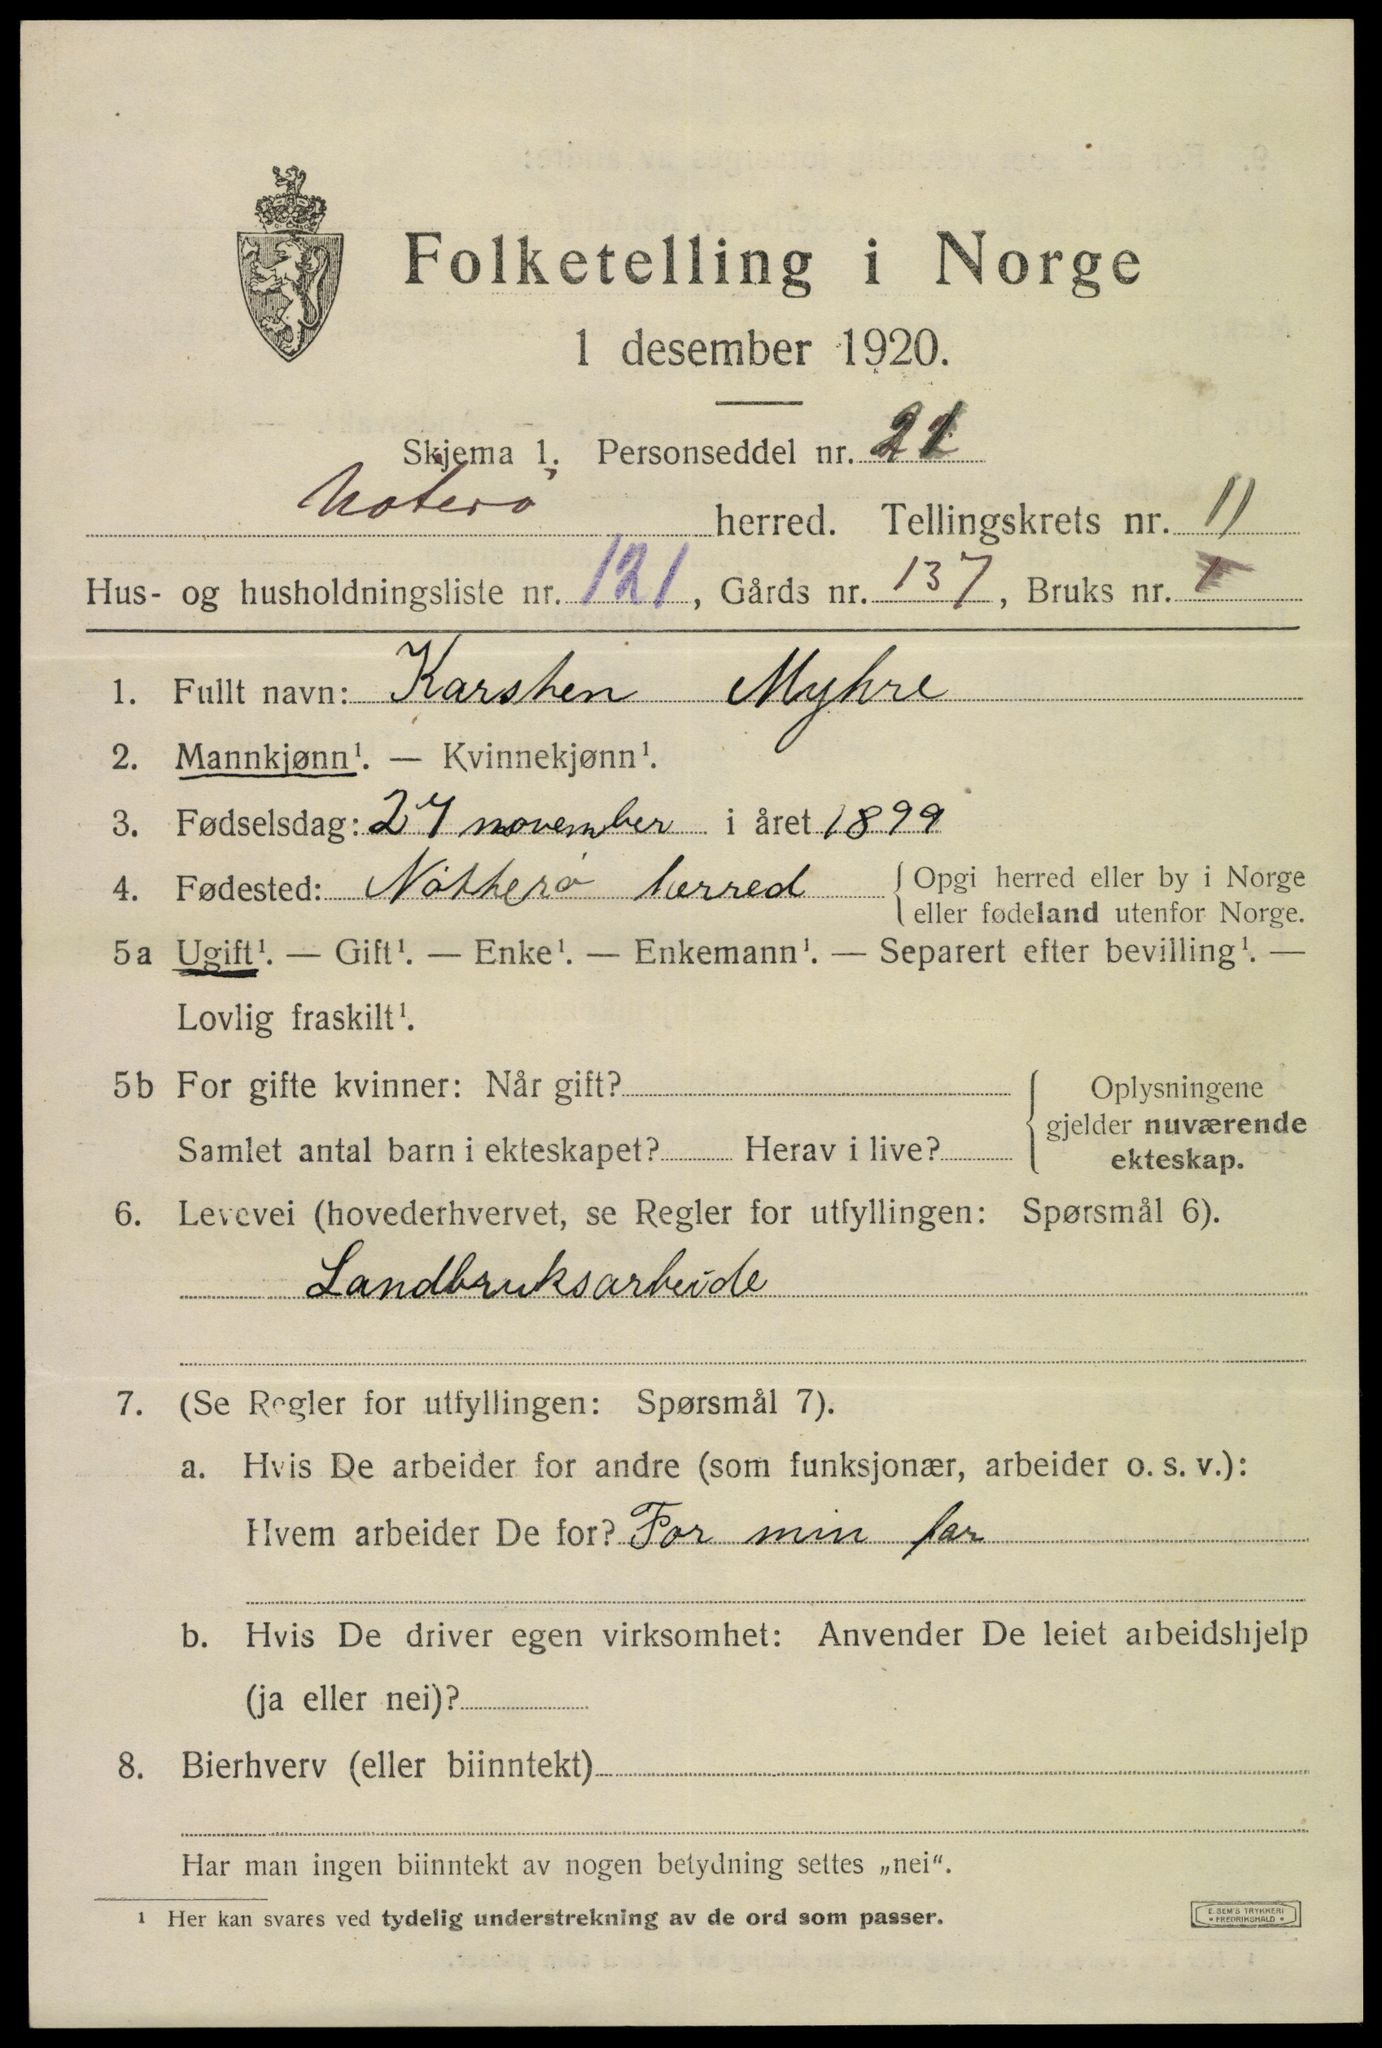 Folketelling i Norge
1 desember 1920.
Skjema 1. Personseddel nr.
Nøterø herred. Tellingskrets nr. 11
Hus- og husholdningsliste nr. 121, Gårds nr. 137, Bruks nr. 1
1. Fullt navn: Karsten Myhre
2. Mannkjønn¹. — Kvinnekjønn¹.
3. Fødselsdag: 27 november i året 1899
4. Fødested: Nøtterø herred { Opgi herred eller by i Norge
eller fødeland utenfor Norge.
5a Ugift¹. — Gift¹. — Enke¹. — Enkemann¹. — Separert efter bevilling¹. —
Lovlig fraskilt¹.
5b For gifte kvinner: Når gift? { Oplysningene
gjelder nuværende
Samlet antal barn i ekteskapet? Herav i live? ekteskap.
6. Levevei (hovederhvervet, se Regler for utfyllingen: Spørsmål 6).
Landbruksarbeide
7. (Se Regler for utfyllingen: Spørsmål 7).
a. Hvis De arbeider for andre (som funksjonær, arbeider o. s. v.):
Hvem arbeider De for? For min far
b. Hvis De driver egen virksomhet: Anvender De leiet arbeidshjelp
(ja eller nei)?
8. Bierhverv (eller biinntekt)
Har man ingen biinntekt av nogen betydning settes „nei“.
¹ Her kan svares ved tydelig understrekning av de ord som passer.
E. SEM'S TRYKKERI
• FREDRIKSHALD •